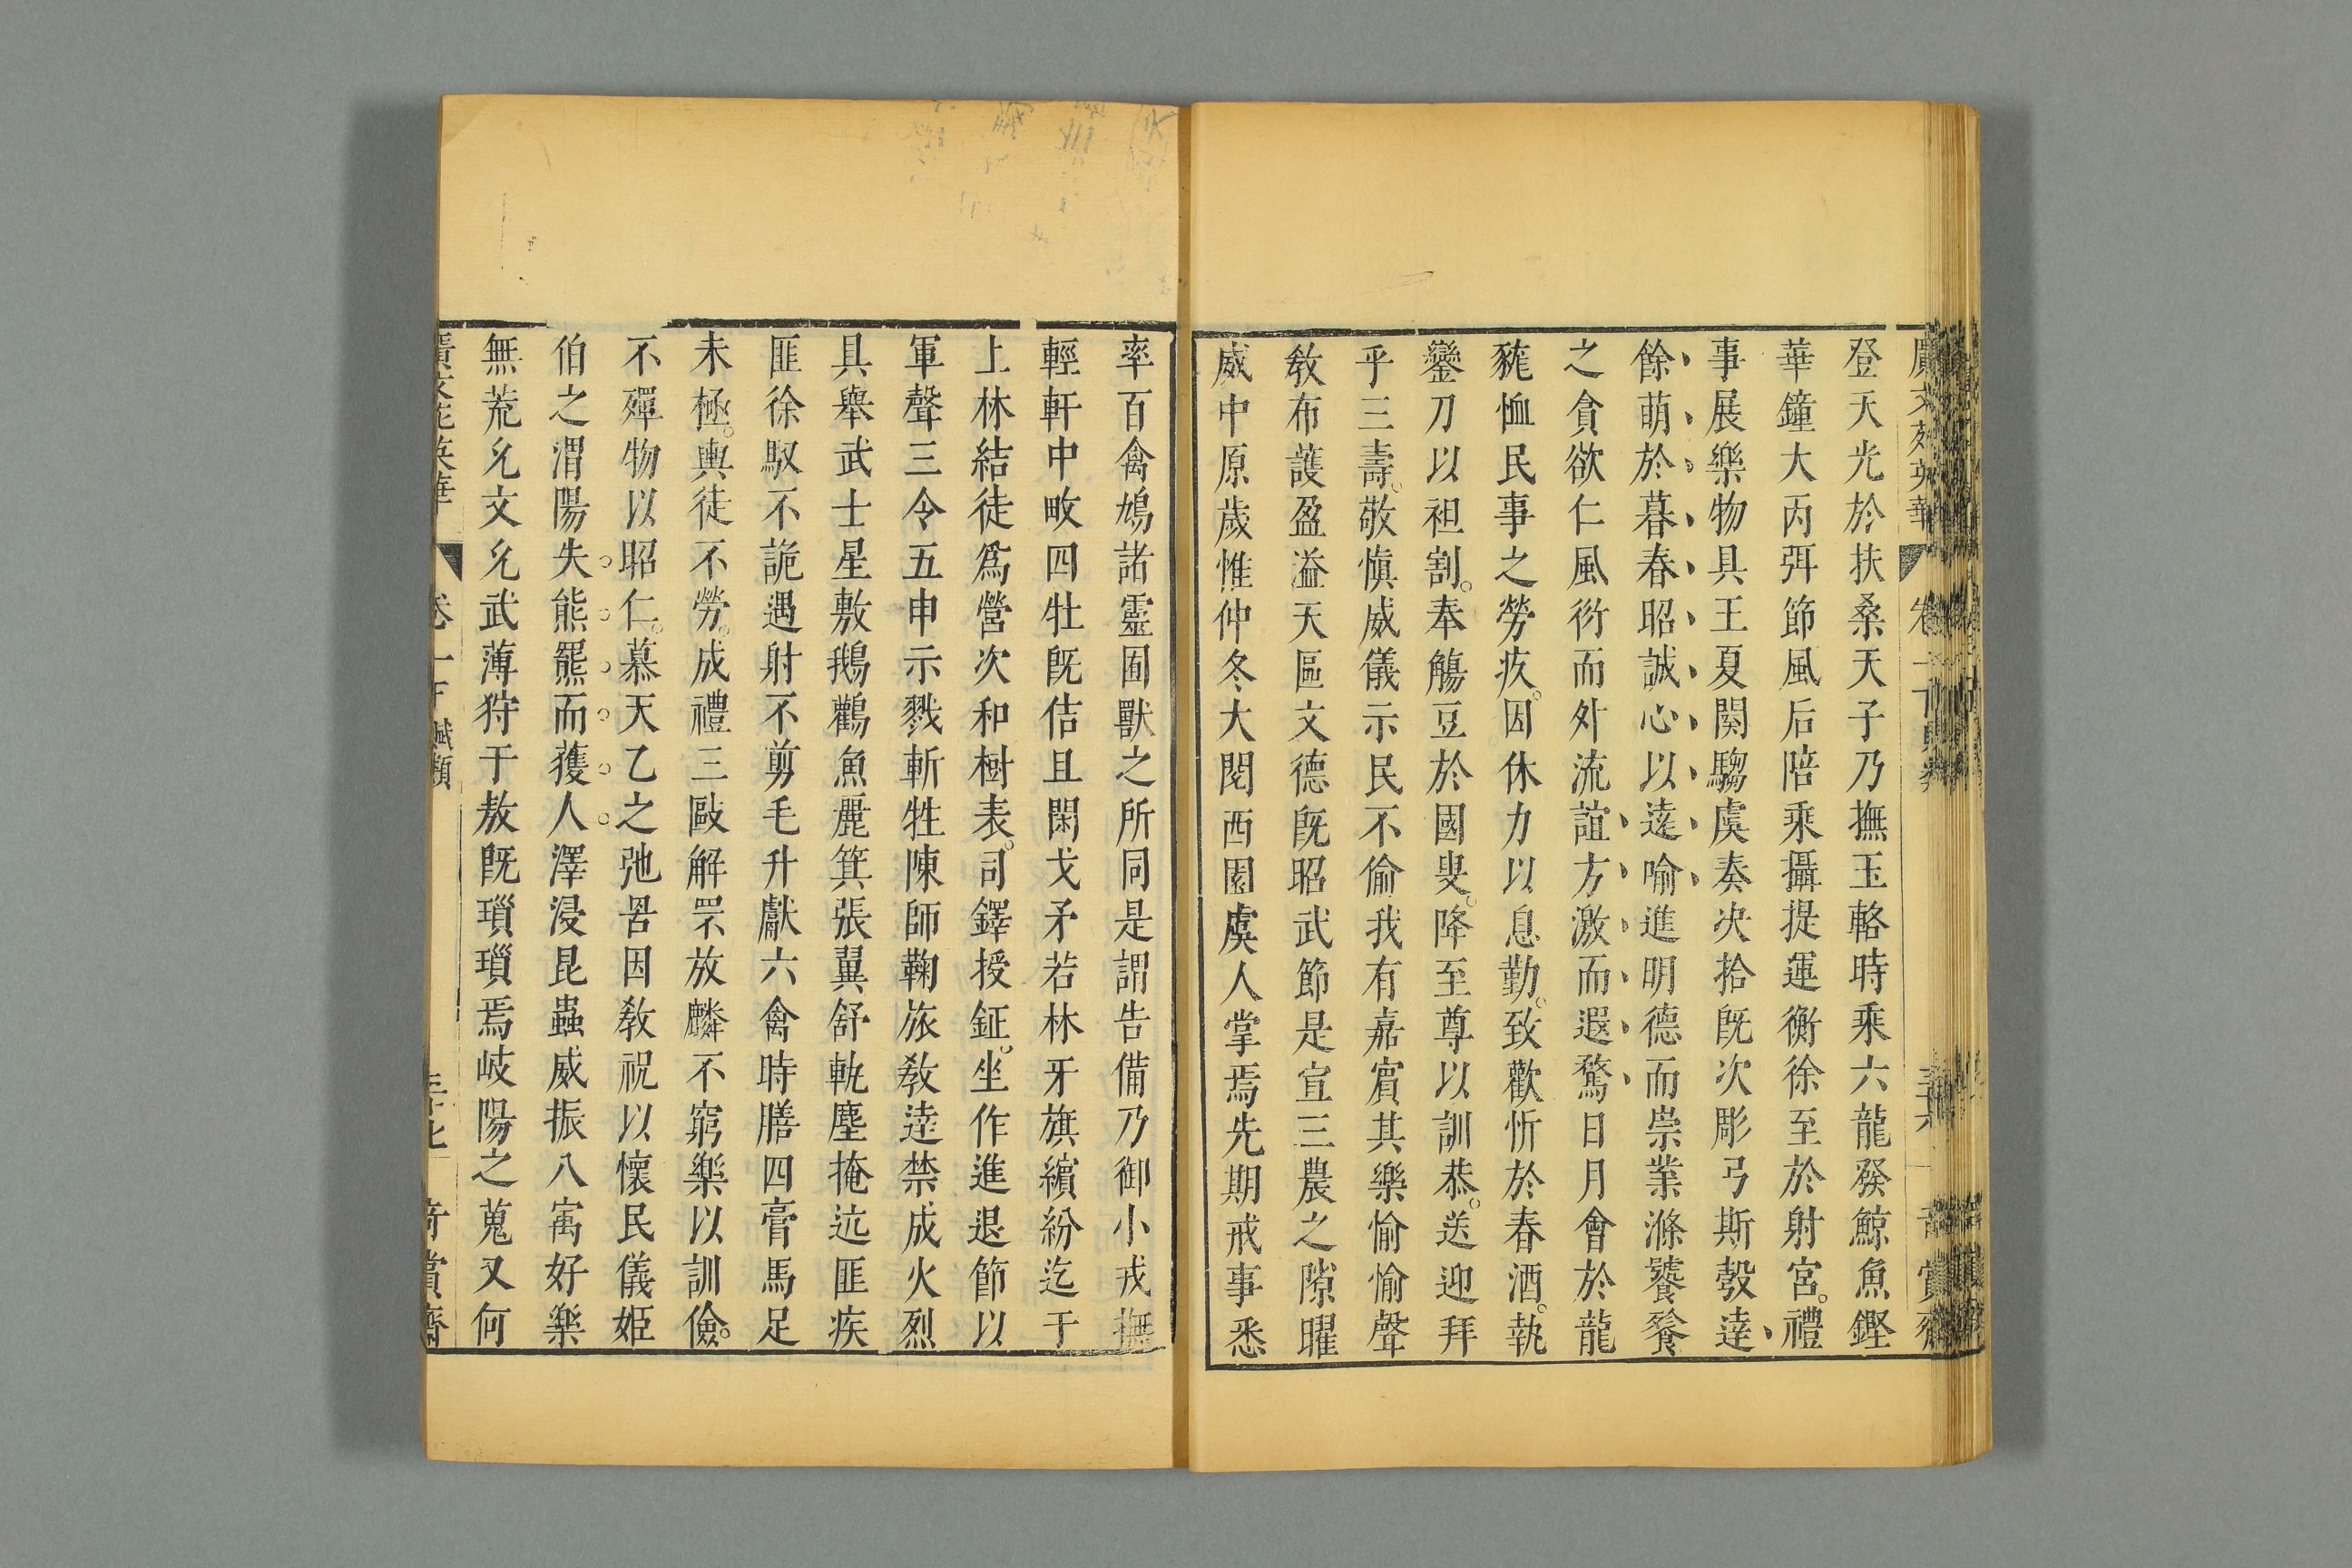 廣文苑英華 卷一下 賦類 三十六 奇賞齋
登天光於扶桑天子乃撫玉輅時乘六龍發鯨魚鏗
華鐘大丙弭節風后陪乘攝提運衡徐至於射宮禮
事展樂物具王夏闋騶虞奏決拾旣次彫弓斯彀達
餘萌於暮春昭誠心以遠喻進明德而崇業滌饕餮
之貪欲仁風衍而外流誼方激而遐騖日月會於龍
狵恤民事之勞疚因休力以息勤致歡忻於春酒執
鑾刀以袒割奉觴豆於國叟降至尊以訓恭送迎拜
乎三壽敬愼威儀示民不偷我有嘉賓其樂愉愉聲
敎布護盈溢天區文德旣昭武節是宣三農之隙曜
威中原歲惟仲冬大閱西園虞人掌焉先期戒事悉
率百禽鳩諸靈囿獸之所同是謂告備乃御小戎撫
輕軒中畋四牡旣佶且閑戈矛若林牙旗繽紛迄于
上林結徒爲營次和樹表司鐸授鉦坐作進退節以
軍聲三令五申示戮斬牲陳師鞠旅敎達禁成火烈
具舉武士星敷鵝鸛魚麗箕張翼舒軌塵掩迒匪疾
匪徐馭不詭遇射不剪毛升獻六禽時膳四膏馬足
未極輿徒不勞成禮三毆解罘放麟不窮樂以訓儉
不殫物以昭仁慕天乙之弛罟因敎祝以懷民儀姬
伯之渭陽失熊羆而獲人澤浸昆蟲威振八㝢好樂
無荒允文允武薄狩于敖旣璅璅焉岐陽之蒐又何
廣文苑英華 卷一下 賦類 三十七 奇賞齋